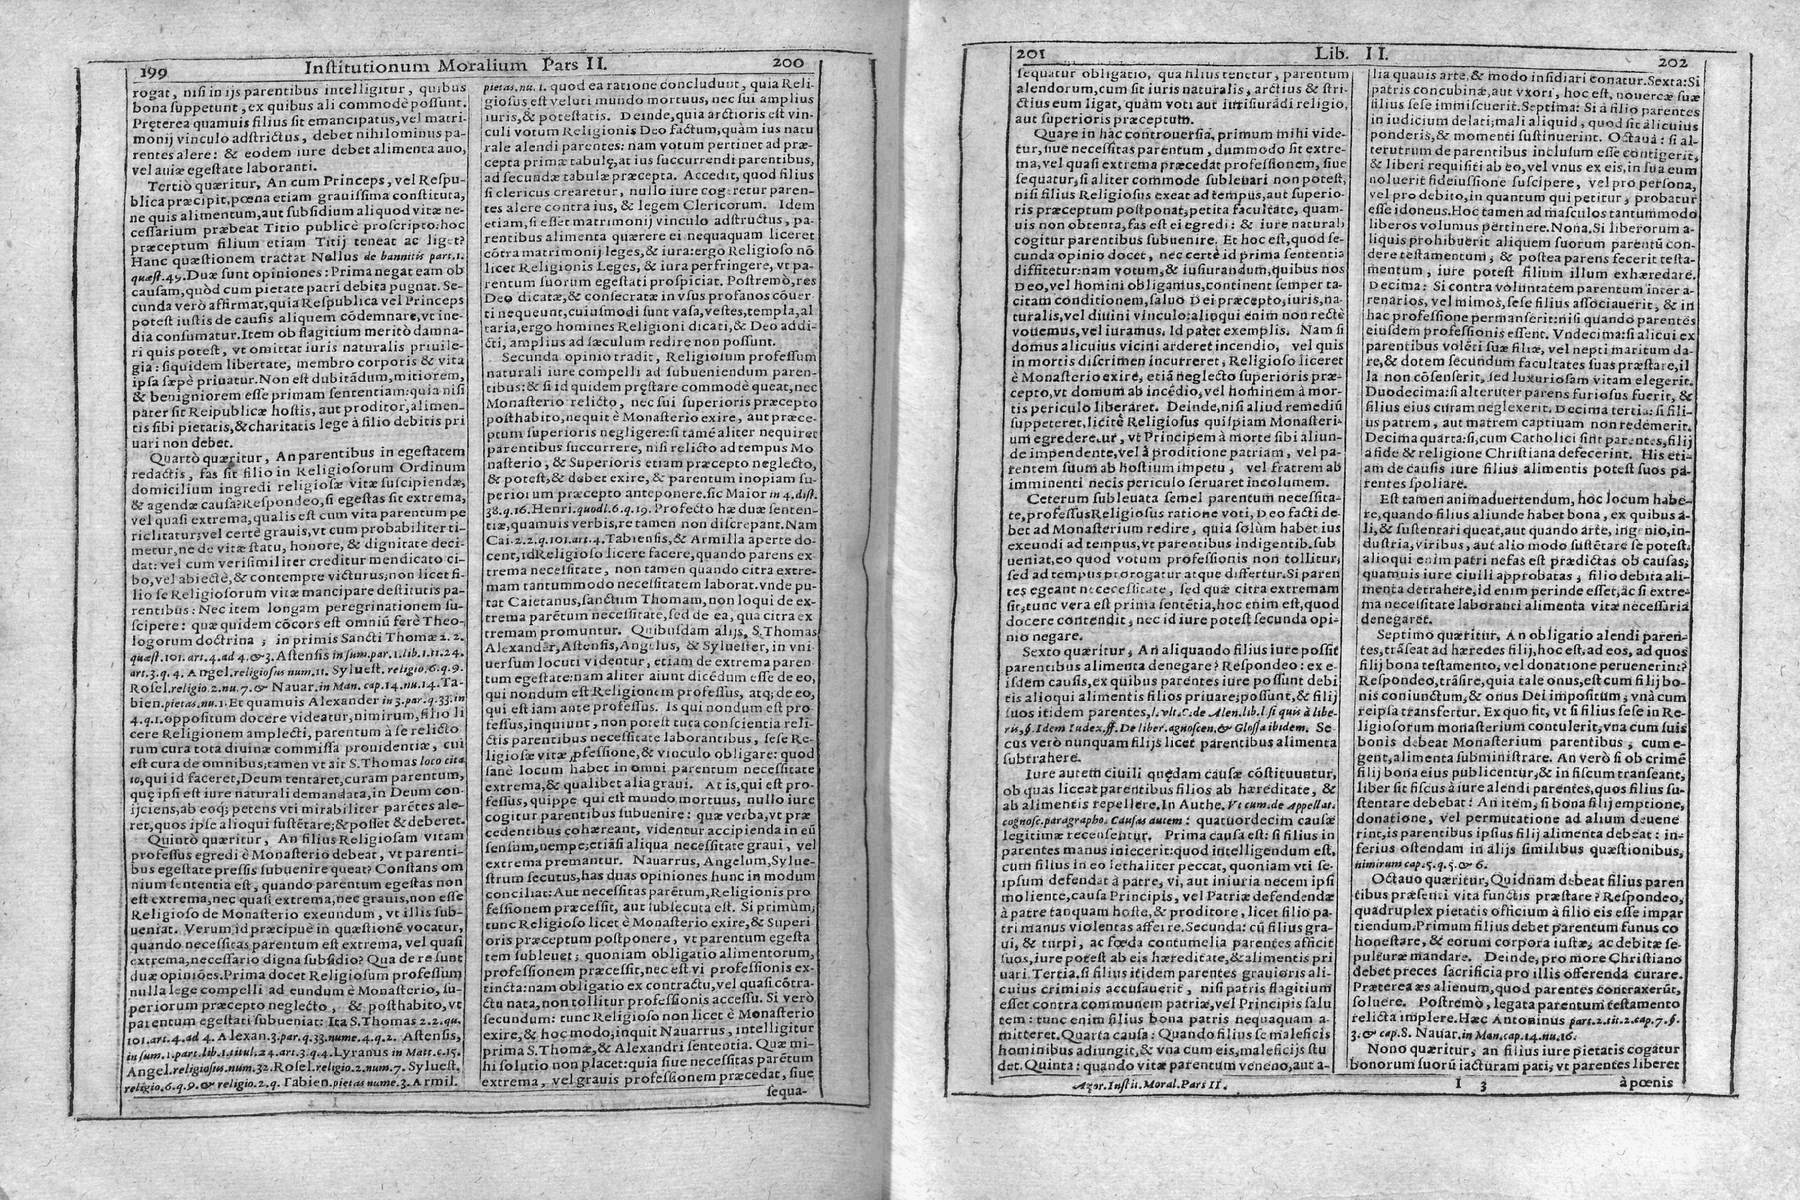 199 Institutionum Moralium Pars II. 200
rogat, nisi in ijs parentibus intelligitur, quibus
bona suppetunt, ex quibus ali commodè possunt.
Pręterea quamuis filius sit emancipatus, vel matri-
monij vinculo adstrictus, debet nihilominus pa-
rentes alere: & eodem iure debet alimenta auo,
vel auiæ egestate laboranti.
Tertiò quæritur, An cum Princeps, vel Respu-
blica præcipit, pœna etiam grauissima constituta,
ne quis alimentum, aut subsidium aliquod vitæ ne-
cessarium præbeat Titio publicè proscripto: hoc
præceptum filium etiam Titij teneat ac liget?
Hanc quæstionem tractat Nellus de bannitis part. 1.
quæst. 49. Duæ sunt opiniones: Prima negat eam ob
causam, quòd cum pietate patri debita pugnat. Se-
cunda verò affirmat, quia Respublica vel Princeps
potest iustis de causis aliquem cōdemnare, vt ine-
dia consumatur. Item ob flagitium meritò damna-
ri quis potest, vt omittat iuris naturalis priuile-
gia: siquidem libertate, membro corporis & vita
ipsa sæpè priuatur. Non est dubitādum, mitiorem,
& benigniorem esse primam sententiam: quia nisi
pater sit Reipublicæ hostis, aut proditor, alimen-
tis sibi pietatis, & charitatis lege à filio debitis pri
uari non debet.
Quartò quæritur, An parentibus in egestatem
redactis, fas sit filio in Religiosorum Ordinum
domicilium ingredi religiosæ vitæ suscipiendæ,
& agendæ causa? Respondeo, si egestas sit extrema,
vel quasi extrema, qualis est cum vita parentum pe
riclitatur; vel certè grauis, vt cum probabiliter ti-
metur, ne de vitæ statu, honore, & dignitate deci-
dat: vel cum verisimiliter creditur mendicato ci-
bo, vel abiectè, & contempte victurus; non licet fi-
lio se Religiosorum vitæ mancipare destitutis pa-
rentibus: Nec item longam peregrinationem su-
scipere: quæ quidem cōcors est omniū ferè Theo-
logorum doctrina, in primis Sancti Thomæ 2. 2.
quæst. 101. art. 4. ad 4. & 3. Astensis in sum. par. 1. lib. 1. tt. 24.
art. 3. q. 4. Angel. religiosus num. 11. Syluest. religio. 6. q. 9.
Rosel. religio. 2. nu. 7. & Nauar. in Man. cap. 14. nu. 14. Ta-
bien. pietas. nu. 1. Et quamuis Alexander in 3. par. q. 33. in
4. q. 1. oppositum docere videatur, nimirum, filio li
cere Religionem amplecti, parentum à se relicto
rum cura tota diuinæ commissa prouidentiæ, cui
est cura de omnibus, tamen vt ait S. Thomas loco cita
to, qui id faceret, Deum tentaret, curam parentum,
quę ipsi est iure naturali demandata, in Deum con-
ijciens, ab eoq; petens vti mirabiliter parētes ale-
ret, quos ipse alioqui sustētare; & posset & deberet.
Quintò quæritur, An filius Religiosam vitam
professus egredi è Monasterio debeat, vt parenti-
bus egestate pressis subuenire queat? Constans om
nium sententia est, quando parentum egestas non
est extrema, nec quasi extrema, nec grauis, non esse
Religioso de Monasterio exeundum, vt illis sub-
ueniat. Verum, id præcipuè in quæstionē vocatur,
quando necessitas parentum est extrema, vel quasi
extrema, necessario digna subsidio? Qua de re sunt
duæ opiniōes. Prima docet Religiosum professum
nulla lege compelli ad eundum è Monasterio, su-
periorum præcepto neglecto, & posthabito, vt
parentum egestati subueniat: Ita S. Thomas 2. 2. qu.
101. art. 4. ad 4. Alexan. 3. par. q. 33. nume. 4. q. 2. Astensis,
in sum. 1. part. lib. 1. titul. 24. art. 3. q. 4. Lyranus in Matt. c. 15.
Angel. religiosus. num. 32. Rosel. religio. 2. num. 7. Syluest.
religio. 6. q. 9. & religio. 2. q. Tabien. pietas nume. 3. Armil.
pietas. nu. 1. quod ea ratione concludunt, quia Reli-
giosus est veluti mundo mortuus, nec sui amplius
iuris, & potestatis. Deinde, quia arctioris est vin-
culi votum Religionis Deo factum, quàm ius natu
rale alendi parentes: nam votum pertinet ad præ-
cepta primæ tabulę, at ius succurrendi parentibus,
ad secundæ tabulæ præcepta. Accedit, quod filius
si clericus crearetur, nullo iure cogeretur paren-
tes alere contra ius, & legem Clericorum. Idem
etiam, si esset matrimonij vinculo adstructus, pa-
rentibus alimenta quærere ei nequaquam liceret
cōtra matrimonij leges, & iura: ergo Religioso nō
licet Religionis Leges, & iura perfringere, vt pa-
rentum suorum egestati prospiciat. Postremò, res
Deo dicatæ, & consecratæ in vsus profanos cōuer
ti nequeunt, cuiusmodi sunt vasa, vestes, templa, al
taria, ergo homines Religioni dicati, & Deo addi-
cti, amplius ad sæculum redire non possunt.
Secunda opinio tradit, Religiosum professum
naturali iure compelli ad subueniendum paren-
tibus: & si id quidem pręstare commodè queat, nec
Monasterio relicto, nec sui superioris præcepto
posthabito, nequit è Monasterio exire, aut præce-
ptum superioris negligere: si tamē aliter nequiret
parentibus succurrere, nisi relicto ad tempus Mo
nasterio, & Superioris etiam præcepto neglecto,
& potest, & debet exire, & parentum inopiam su-
periorum præcepto anteponere. sic Maior in 4. dist.
38. q. 16. Henri. quodl. 6. q. 19. Profecto hæ duæ senten-
tiæ, quamuis verbis, re tamen non discrepant. Nam
Cai. 2. 2. q. 101. art. 4. Tabiensis, & Armilla aperte do-
cent, id Religioso licere facere, quando parens ex-
trema necessitate, non tamen quando citra extre-
mam tantummodo necessitatem laborat. vnde pu-
tat Caietanus, sanctum Thomam, non loqui de ex-
trema parētum necessitate, sed de ea, qua citra ex
tremam promuntur. Quibusdam alijs, S. Thomas
Alexander, Astensis, Angelus, & Syluester, in vni-
uersum locuti videntur, etiam de extrema paren
tum egestate: nam aliter aiunt dicēdum esse de eo,
qui nondum est Religionem professus, atq; de eo,
qui est iam ante professus. Is qui nondum est pro
fessus, inquiunt, non potest tuta conscientia reli-
ctis parentibus necessitate laborantibus, sese Re-
ligiosæ vitæ professione, & vinculo obligare: quod
sanè locum habet in omni parentum necessitate
extrema, & qualibet alia graui. At is, qui est pro-
fessus, quippe qui est mundo mortuus, nullo iure
cogitur parentibus subuenire: quæ verba, vt præ
cedentibus cohæreant, videntur accipienda in eū
sensum, nempe; etiāsi aliqua necessitate graui, vel
extrema premantur. Nauarrus, Angelum, Sylue-
strum secutus, has duas opiniones hunc in modum
conciliat: Aut necessitas parētum, Religionis pro
fessionem præcessit, aut subsecuta est. Si primùm;
tunc Religioso licet è Monasterio exire, & Superi
oris præceptum postponere, vt parentum egesta
tem subleuet; quoniam obligatio alimentorum,
professionem præcessit, nec est vi professionis ex-
tincta: nam obligatio ex contractu, vel quasi cōtra-
ctu nata, non tollitur professionis accessu. Si verò
secundum: tunc Religioso non licet è Monasterio
exire, & hoc modo, inquit Nauarrus, intelligitur
prima S. Thomæ, & Alexandri sententia. Quæ mi-
hi solutio non placet: quia siue necessitas parētum
extrema, vel grauis professionem præcedat, siue
sequa-
201 Lib. II. 202
sequatur obligatio, qua filius tenetur, parentum
alendorum, cum sit iuris naturalis, arctius & stri-
ctius eum ligat, quàm voti aut iurisiurādi religio,
aut superioris præceptum.
Quare in hac controuersia, primum mihi vide-
tur, siue necessitas parentum, dummodo sit extre-
ma, vel quasi extrema præcedat professionem, siue
sequatur, si aliter commode subleuari non potest,
nisi filius Religiosus exeat ad tempus, aut superio-
ris præceptum postponat, petita facultate, quam-
uis non obtenta, fas est ei egredi: & iure naturali
cogitur parentibus subuenire. Et hoc est, quod se-
cunda opinio docet, nec certè id prima sententia
diffitetur: nam votum, & iusiurandum, quibus nos
Deo, vel homini obligamus, continent semper ta-
citam conditionem, saluo Dei præcepto, iuris, na-
turalis, vel diuini vinculo: alioqui enim non rectè
vouemus, vel iuramus. Id patet exemplis. Nam si
domus alicuius vicini arderet incendio, vel quis
in mortis discrimen incurreret, Religioso liceret
è Monasterio exire, etiā neglecto superioris præ-
cepto, vt domum ab incēdio, vel hominem à mor-
tis periculo liberaret. Deinde, nisi aliud remediū
suppeteret, licitè Religiosus quispiam Monasteri-
um egrederetur, vt Principem à morte sibi aliun-
de impendente, vel à proditione patriam, vel pa-
rentem suum ab hostium impetu, vel fratrem ab
imminenti necis periculo seruaret incolumem.
Ceterum subleuata semel parentum necessita-
te, professus Religiosus ratione voti, Deo facti de-
bet ad Monasterium redire, quia solùm habet ius
exeundi ad tempus, vt parentibus indigentib. sub
ueniat, eo quod votum professionis non tollitur,
sed ad tempus prorogatur atque differtur. Si paren
tes egeant necessitate, sed quæ citra extremam
sit, tunc vera est prima sentētia, hoc enim est, quod
docere contendit, nec id iure potest secunda opi-
nio negare.
Sexto quæritur, An aliquando filius iure possit
parentibus alimenta denegare? Respondeo: ex e-
isdem causis, ex quibus parentes iure possunt debi
tis alioqui alimentis filios priuare; possunt, & filij
suos itidem parentes, l. vlt. C. de Alen. lib. l. si quis à libe-
ris, §. Idem Iudex, ff. De liber. agnoscen. & Glossa ibidem. Se
cus verò nunquam filijs licet parentibus alimenta
subtrahere.
Iure autem ciuili quędam causæ cōstituuntur,
ob quas liceat parentibus filios ab hæreditate, &
ab alimentis repellere. In Authe. Vt cum de Appellat.
cognosc. paragrapho. Causas autem: quatuordecim causæ
legitimæ recensentur. Prima causa est: si filius in
parentes manus iniecerit: quod intelligendum est,
cum filius in eo lethaliter peccat, quoniam vti se-
ipsum defendat à patre, vi, aut iniuria necem ipsi
moliente, causa Principis, vel Patriæ defendendæ
à patre tanquam hoste, & proditore, licet filio pa-
tri manus violentas afferre. Secunda: cū filius gra-
ui, & turpi, ac fœda contumelia parentes afficit
suos, iure potest ab eis hæreditate, & alimentis pri
uari. Tertia. si filius itidem parentes grauioris ali-
cuius criminis accusauerit, nisi patris flagitium
esset contra communem patriæ, vel Principis salu
tem: tunc enim filius bona patris nequaquam a-
mitteret. Quarta causa: Quando filius se maleficis
hominibus adiungit, & vna cum eis, maleficijs stu
det. Quinta: quando vitæ parentum veneno, aut a-
Azor. Instit. Moral. Pars II.
lia quauis arte, & modo insidiari conatur. Sexta: Si
patris concubinæ, aut vxori, hoc est, nouercæ suæ
filius sese immiscuerit. Septima: Si à filio parentes
in iudicium delati; mali aliquid, quod sit alicuius
ponderis, & momenti sustinuerint. Octauà: si al-
terutrum de parentibus inclusum esse contigerit,
& liberi requisiti ab eo, vel vnus ex eis, in sua eum
noluerit fideiussione suscipere, vel pro persona,
vel pro debito, in quantum qui petitur, probatur
esse idoneus. Hoc tamen ad masculos tantummodo
liberos volumus pertinere. Nona. Si liberorum a-
liquis prohibuerit aliquem suorum parentū con-
dere testamentum, & postea parens fecerit testa-
mentum, iure potest filium illum exhæredare.
Decima: Si contra voluntatem parentum inter a-
renarios, vel mimos, sese filius associauerit, & in
hac professione permanserit: nisi quando parentes
eiusdem professionis essent. Vndecima: si alicui ex
parentibus volēti suæ filiæ, vel nepti maritum da-
re, & dotem secundum facultates suas præstare, il
la non cōsenserit, sed luxuriosam vitam elegerit.
Duodecima: si alteruter parens furiosus fuerit, &
filius eius curam neglexerit. Decima tertia: si fili-
us patrem, aut matrem captiuam non redemerit.
Decima quarta: si, cum Catholici sint parentes, filij
à fide & religione Christiana defecerint. His eti-
am de causis iure filius alimentis potest suos pa-
rentes spoliare.
Est tamen animaduertendum, hoc locum habe-
re, quando filius aliunde habet bona, ex quibus a-
li, & sustentari queat, aut quando arte, ingenio, in-
dustria, viribus, aut alio modo sustētare se potest.
alioqui enim patri nefas est prædictas ob causas,
quamuis iure ciuili approbatas, filio debita ali-
menta detrahere, id enim perinde esset, ac si extre-
ma necessitate laboranti alimenta vitæ necessaria
denegaret.
Septimo quæritur, An obligatio alendi paren-
tes, trāseat ad hæredes filij, hoc est, ad eos, ad quos
filij bona testamento, vel donatione peruenerint?
Respondeo, trāsire, quia tale onus, est cum filij bo-
nis coniunctum, & onus Dei impositum; vnà cum
reipsa transfertur. Ex quo fit, vt si filius sese in Re-
ligiosorum monasterium contulerit, vna cum suis
bonis debeat Monasterium parentibus, cum e-
gent, alimenta subministrare. An verò si ob crimē
filij bona eius publicentur, & in fiscum transeant,
liber sit fiscus à iure alendi parentes, quos filius su-
stentare debebat: An item, si bona filij emptione,
donatione, vel permutatione ad alium deuene
rint, is parentibus ipsius filij alimenta debeat: in-
ferius ostendam in alijs similibus quæstionibus,
nimirum cap. 5. q. 5. & 6.
Octauo quæritur, Quidnam debeat filius paren
tibus præsenti vita functis præstare? Respondeo,
quadruplex pietatis officium à filio eis esse impar
tiendum. Primum filius debet parentum funus co
honestare, & eorum corpora iustæ, ac debitæ se-
pulturæ mandare. Deinde, pro more Christiano
debet preces sacrificia pro illis offerenda curare.
Præterea æs alienum, quod parentes contraxerūt,
soluere. Postremò, legata parentum testamento
relicta implere. Hæc Antoninus part. 2. tit. 2. cap. 7. §.
3. & cap. S. Nauar. in Man. cap. 14. nu. 16.
Nono quæritur, an filius iure pietatis cogatur
bonorum suorū iacturam pati, vt parentes liberet
I 3 à pœnis